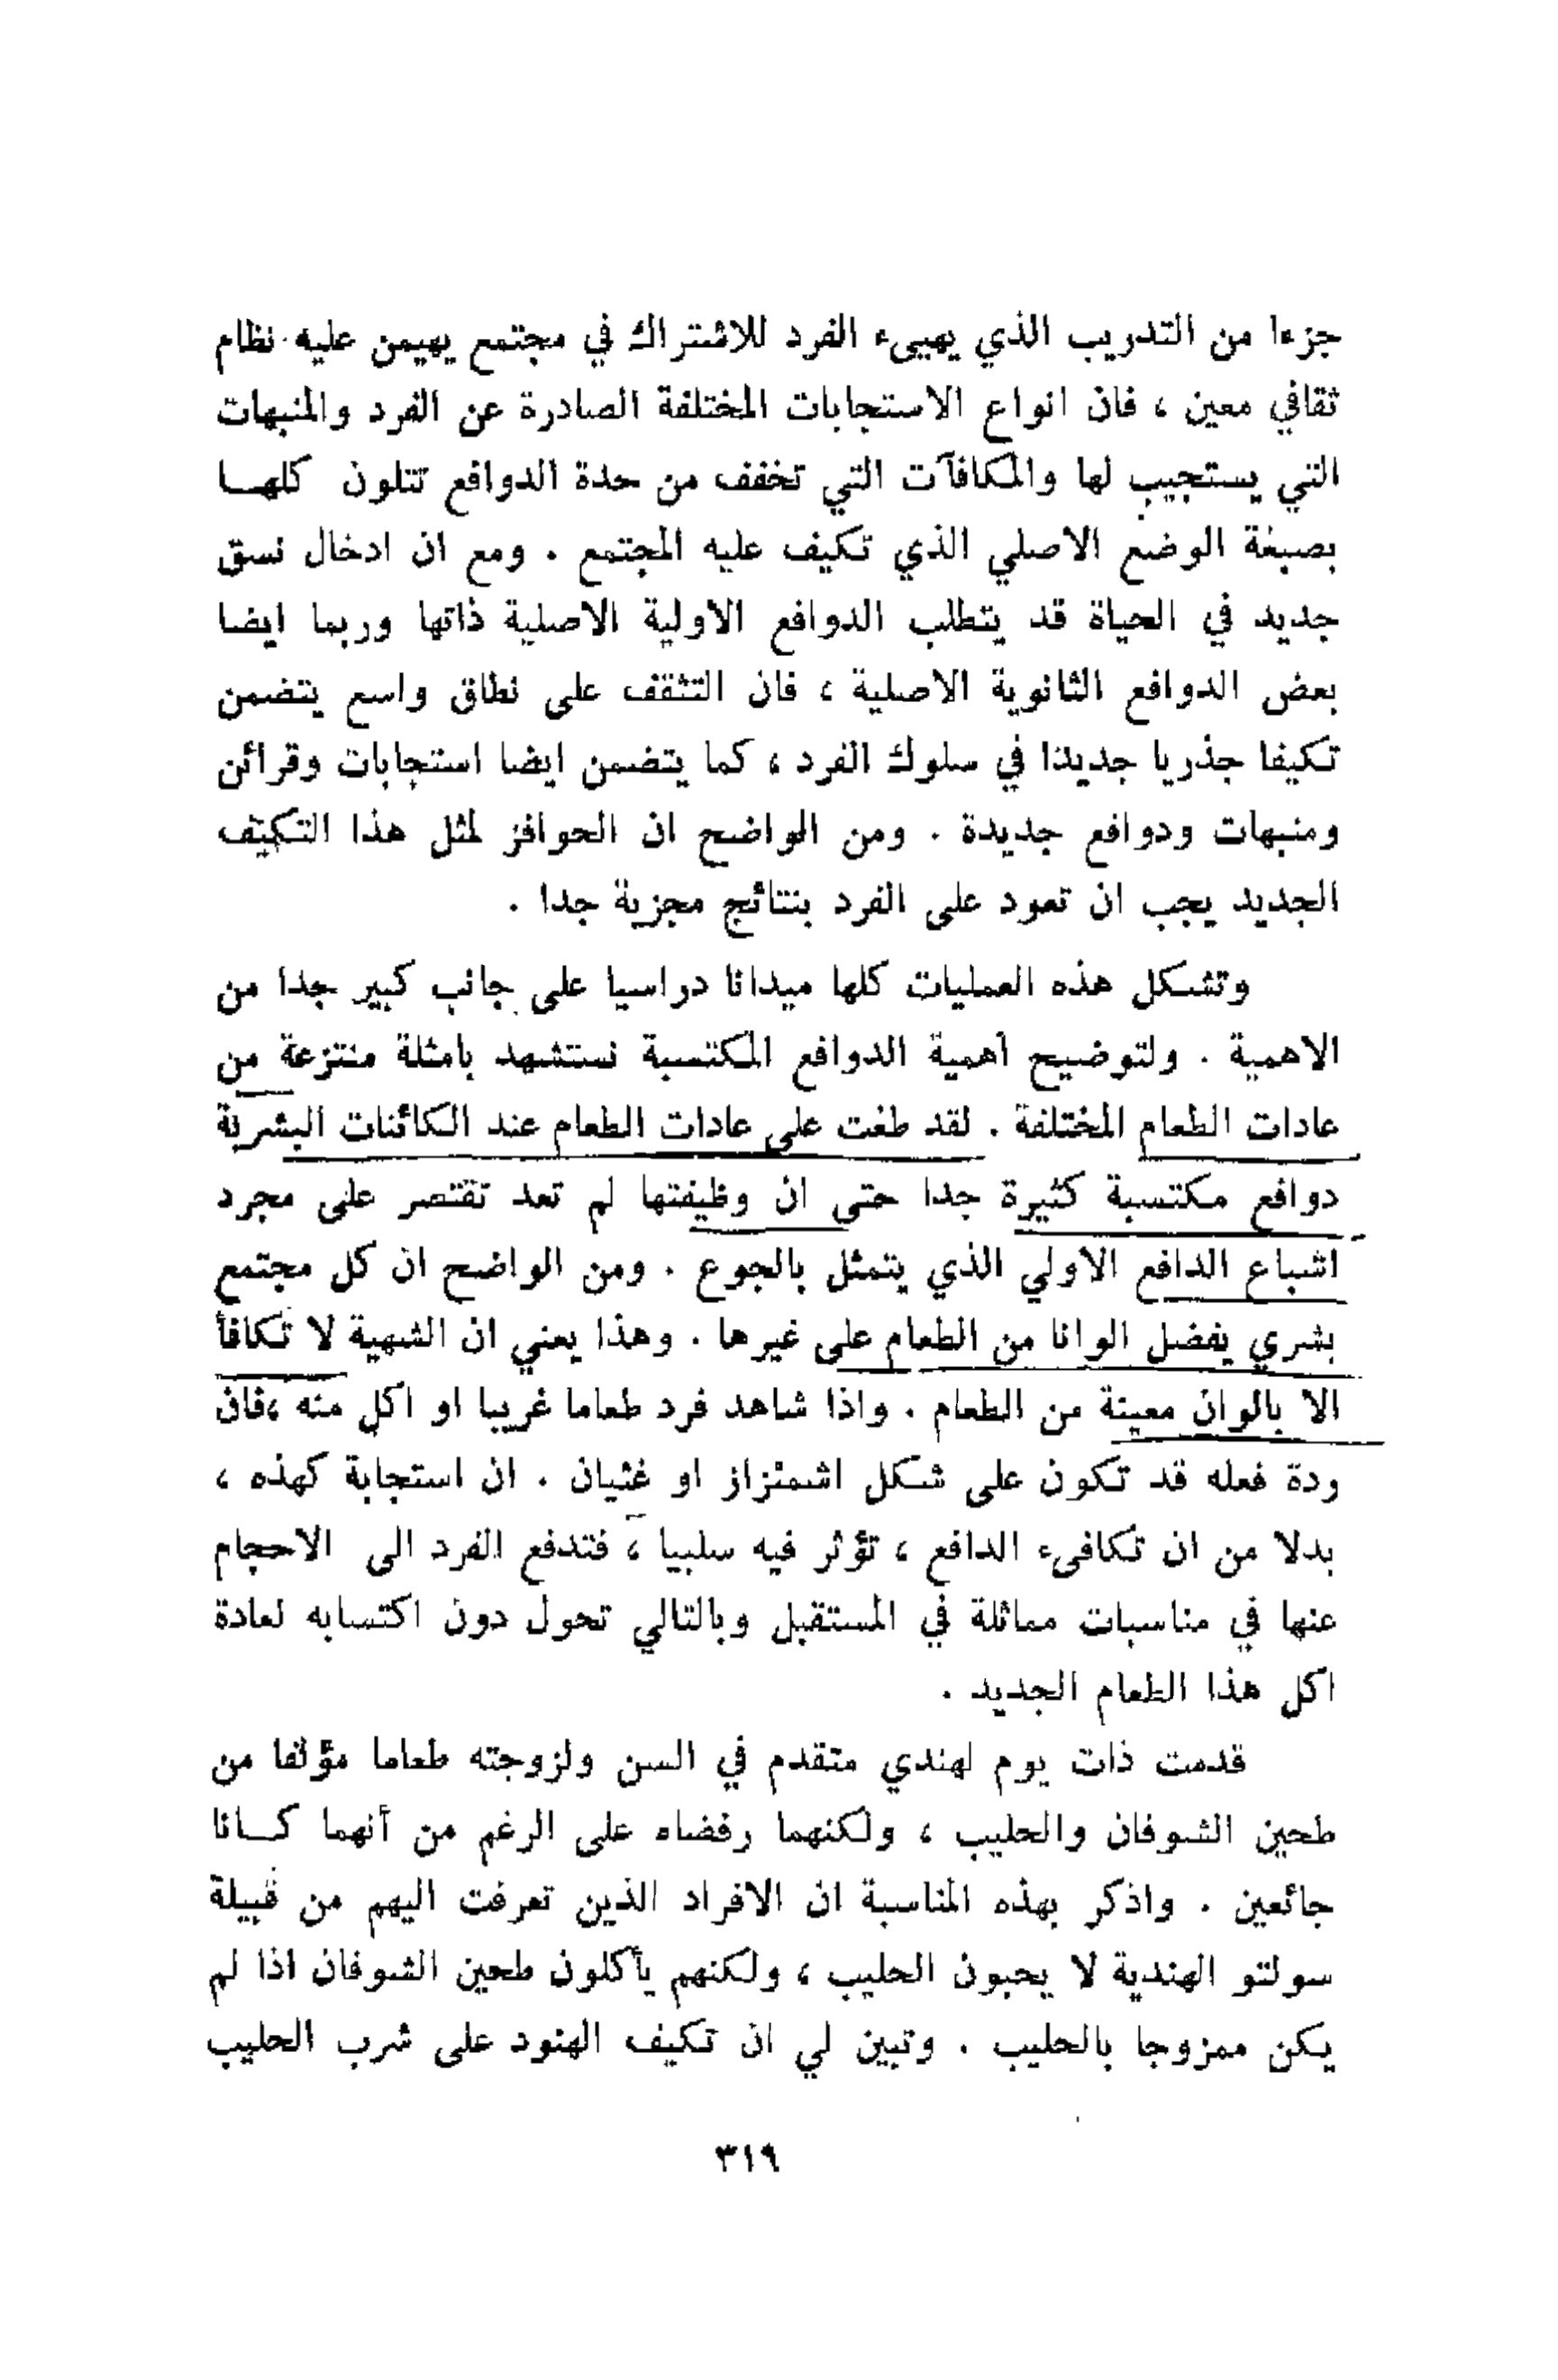 جزءا من التدريب الذي يهيىء الفرد للاشتراك في مجتمع يهيمن عليه نظام
ثقافي معين ، فان انواع الاستجابات المختلفة الصادرة عن الفرد والمنبهات
التي يستجيب لها والمكافآت التي تخفف من حدة الدوافع تتلون كلهــا
بصبغة الوضع الاصلي الذي تكيف عليه المجتمع . ومع ان ادخال نسق
جديد في الحياة قد يتطلب الدوافع الاولية الاصلية ذاتها وربما ايضا
بعض الدوافع الثانوية الاصلية ، فان التثقف على نطاق واسع يتضمن
تكيفا جذريا جديدا في سلوك الفرد ، كما يتضمن ايضا استجابات وقرائن
ومنبهات ودوافع جديدة . ومن الواضح ان الحوافز لمثل هذا التكيف
الجديد يجب ان تعود على الفرد بنتائج مجزية جدا .
وتشكل هذه العمليات كلها ميدانا دراسيا على جانب كبير جدا من
الاهمية . ولتوضيح أهمية الدوافع المكتسبة نستشهد بامثلة منتزعة من
عادات الطعام المختلفة . لقد طغت على عادات الطعام عند الكائنات البشرية
دوافع مكتسبة كثيرة جدا حتى ان وظيفتها لم تعد تقتصر على مجرد
اشباع الدافع الاولي الذي يتمثل بالجوع . ومن الواضح ان كل مجتمع
بشري يفضل الوانا من الطعام على غيرها . وهذا يعني ان الشهية لا تكافأ
الا بالوان معينة من الطعام . واذا شاهد فرد طعاما غريبا او اكل منه ،فان
ردة فعله قد تكون على شكل اشمئزاز او غثيان . ان استجابة كهذه ،
بدلا من ان تكافىء الدافع ، تؤثر فيه سلبيا ، فتدفع الفرد الى الاحجام
عنها في مناسبات مماثلة في المستقبل وبالتالي تحول دون اكتسابه لعادة
اكل هذا الطعام الجديد .
قدمت ذات يوم لهندي متقدم في السن ولزوجته طعاما مؤلفا من
طحين الشوفان والحليب ، ولكنهما رفضاه على الرغم من أنهما كــانا
جائعين . واذكر بهذه المناسبة ان الافراد الذين تعرفت اليهم من قبيلة
سولتو الهندية لا يحبون الحليب ، ولكنهم يأكلون طحين الشوفان اذا لم
يكن ممزوجا بالحليب . وتبين لي ان تكيف الهنود على شرب الحليب
٣١٩